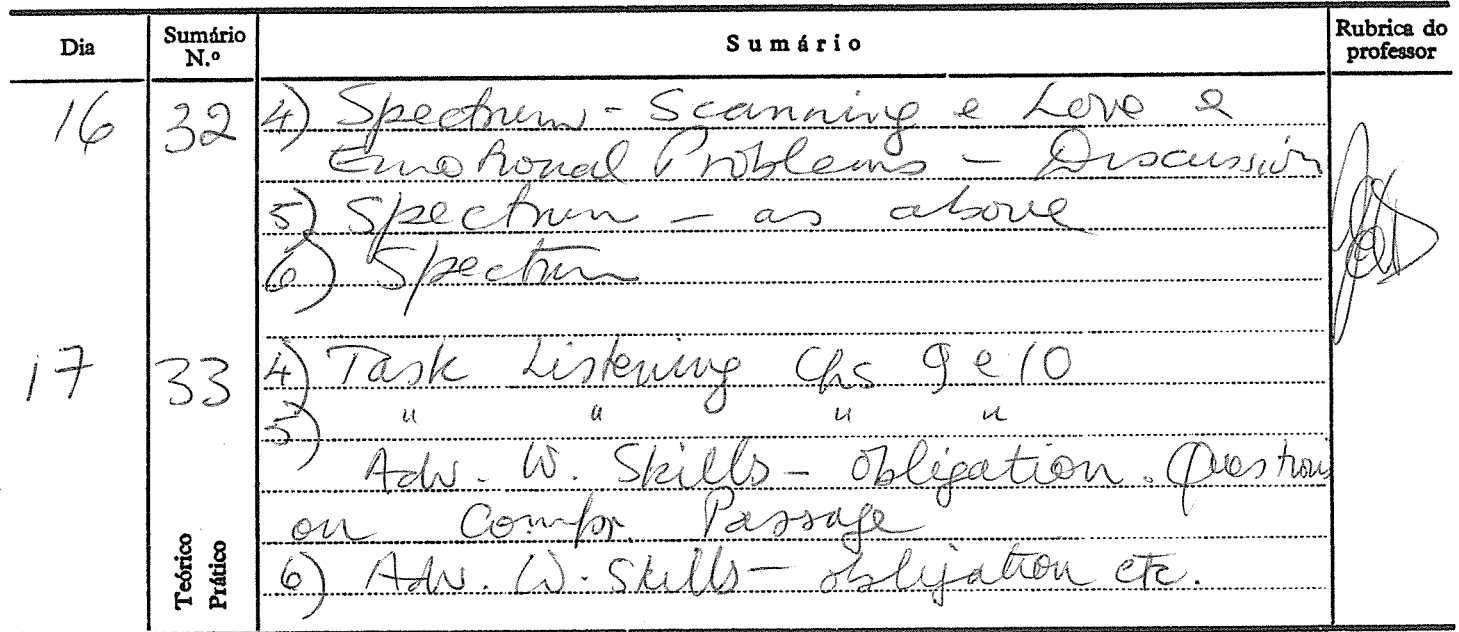 Dia Sumário N.º Sumário Rubrica do professor
16 32 4) Spectrum - Scanning e Love e
Emotional Problems - Discussion
5) Spectrum - as above
6) Spectrum
17 33 4) Task Listening Chs 9 e 10
5) " " " "
Adv. W. Skills - obligation. Questions
on Compr. Passage
6) Adv. W. Skills - obligation etc.
Teórico
Prático